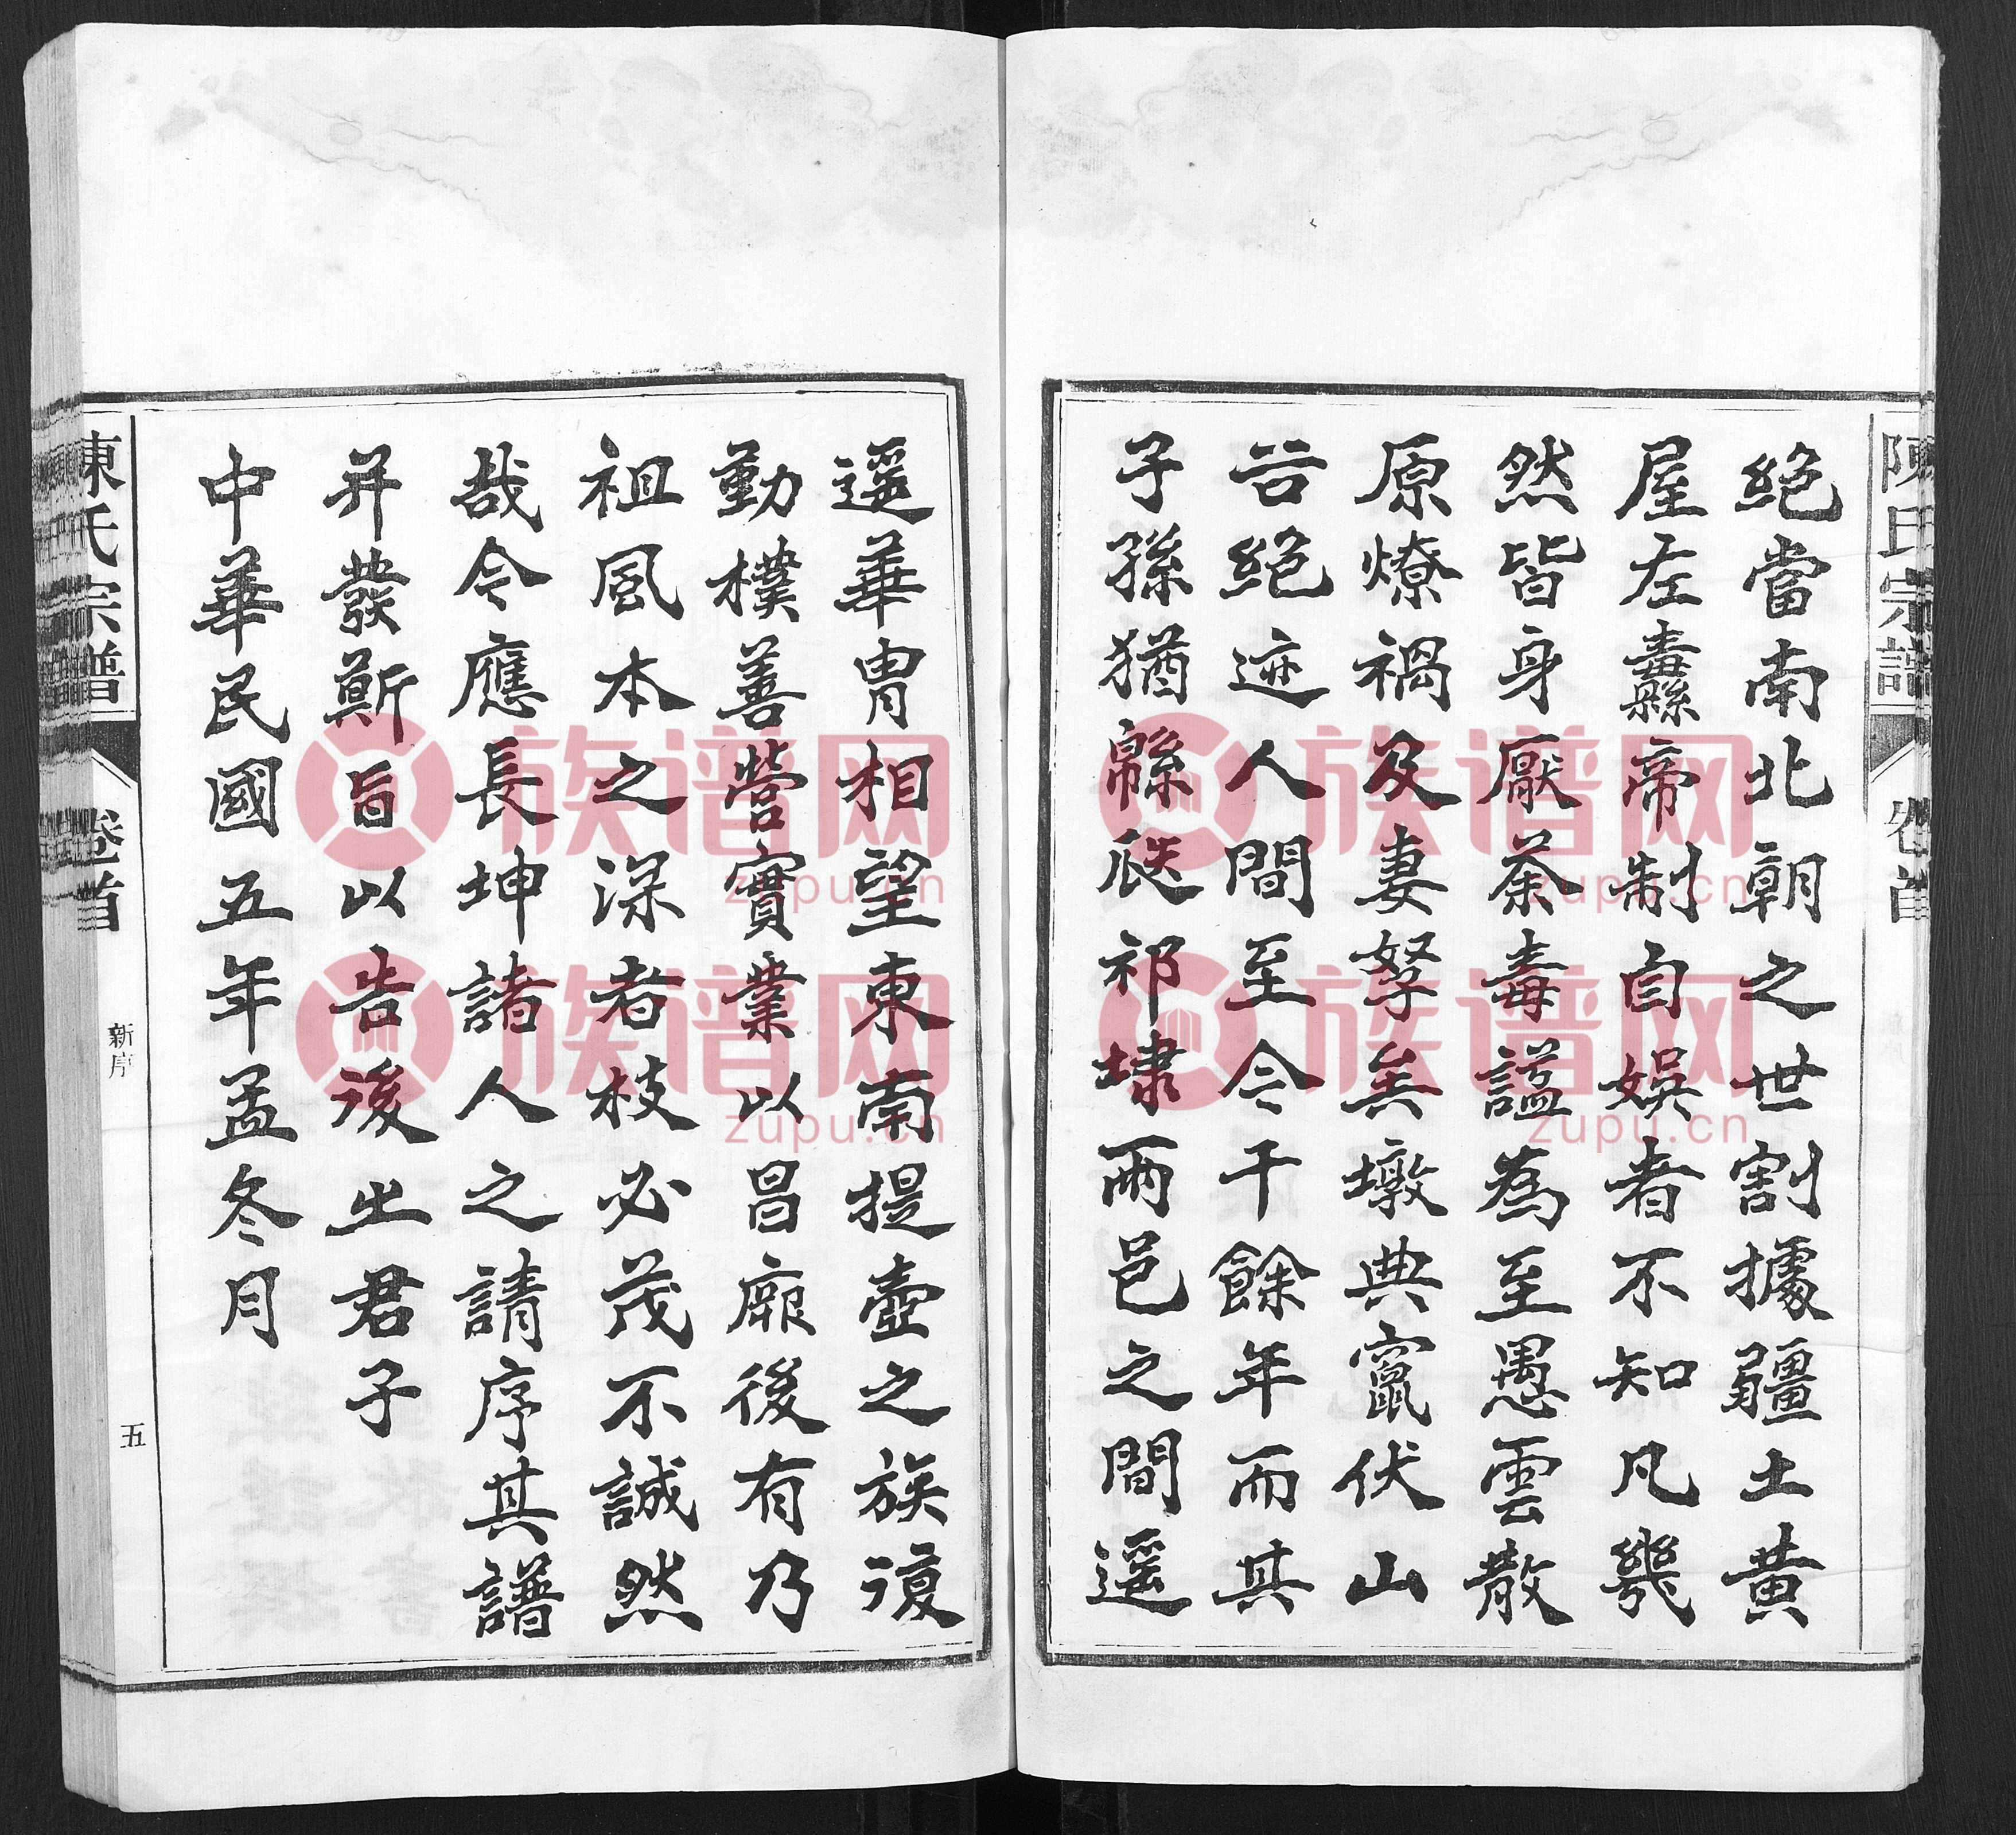 陳氏宗譜
卷首
絕當南北朝之世割據疆土黃
屋左纛帝制自娛者不知凡幾
然皆身厭荼毒謚為至愚雲散
原燎禍及妻孥矣墩典竄伏山
谷絕迹人間至今千餘年而其
子孫猶緜延祁埭兩邑之間遥
遥華胄相望東南提壺之族復
勤樸善營實業以昌厥後有乃
祖風本之深者枝必茂不誠然
哉今應長坤諸人之請序其譜
并發斯旨以告後之君子
中華民國五年孟冬月
陳氏宗譜
卷首
新序
五
族谱网
zupu.cn
族谱网
zupu.cn
族谱网
zupu.cn
族谱网
zupu.cn